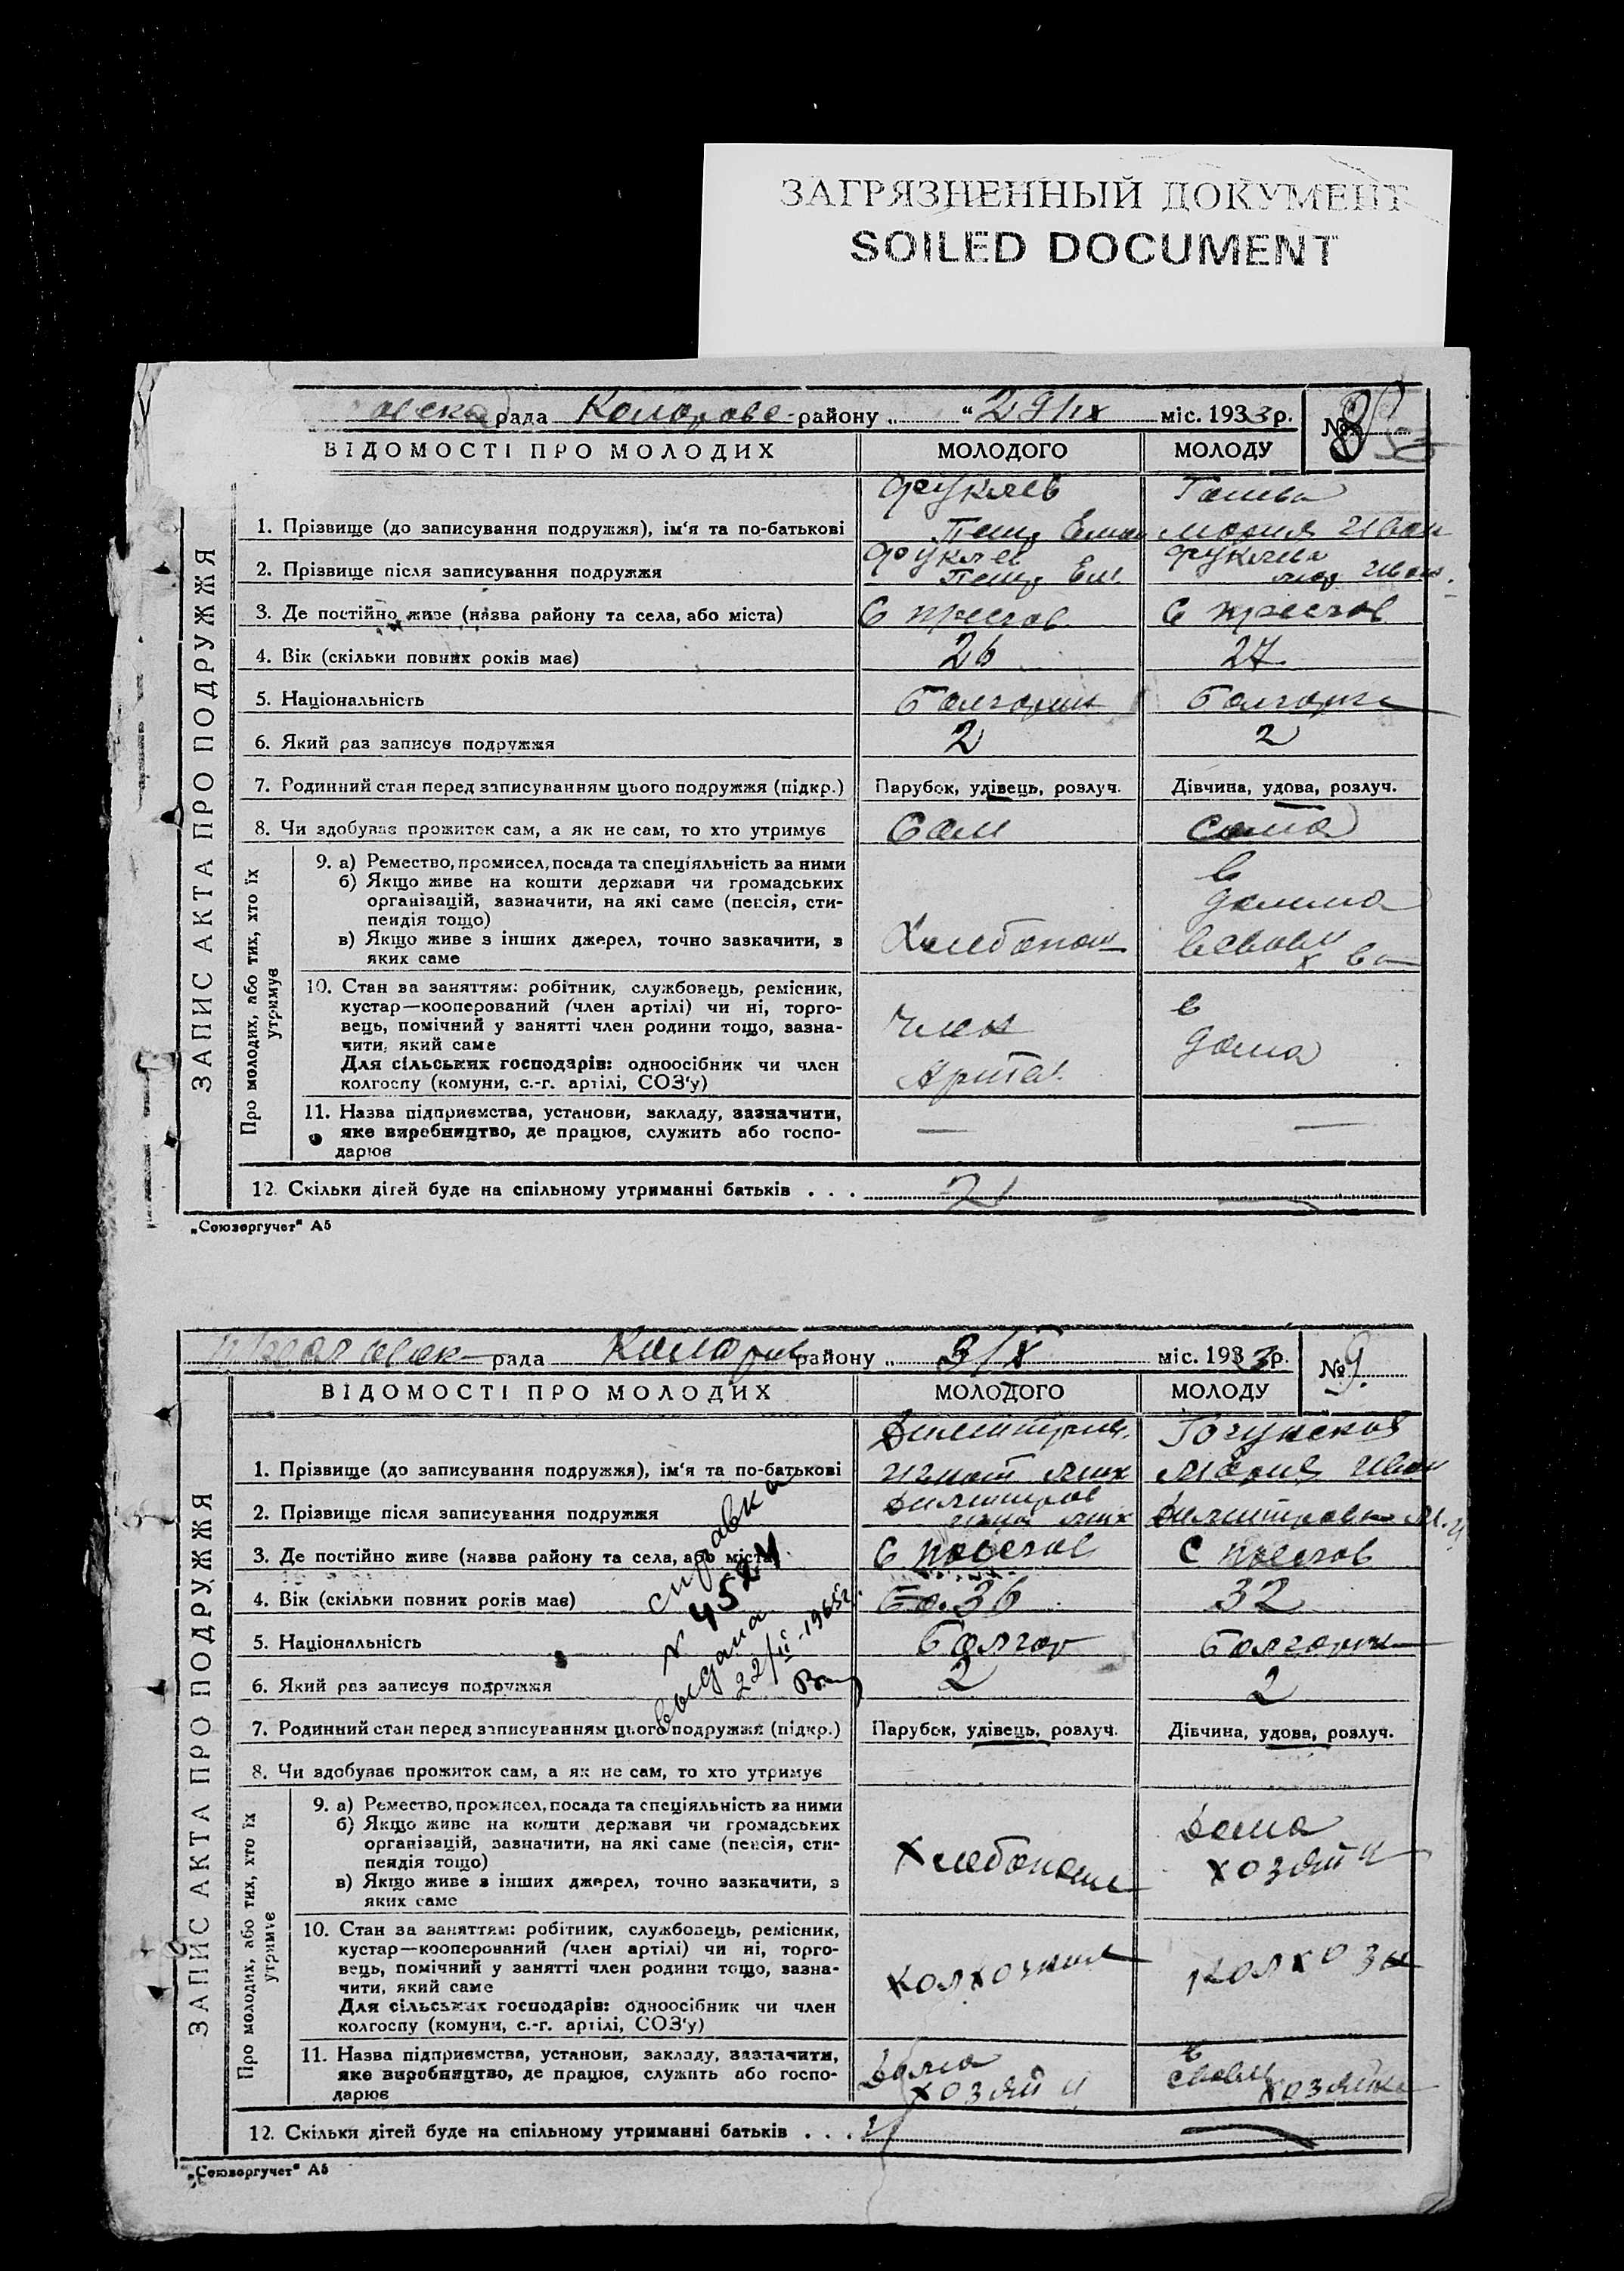 ЗАГРЯЗНЕННЫЙ ДОКУМЕНТ
SOILED DOCUMENT
рада Коларовс району „ “ 29/IX міс. 1933 р. № 8
ВІДОМОСТІ ПРО МОЛОДИХ МОЛОДОГО МОЛОДУ
ЗАПИС АКТА ПРО ПОДРУЖЖЯ
Фукляев
1. Прізвище (до записування подружжя), ім‘я та по-батькові Петр Мария Иван
Фукляев Фукляева
2. Прізвище після записування подружжя Петр Мар Иван.
3. Де постійно живе (назва району та села, або міста) С С
4. Вік (скільки повних років має) 26 27
5. Національність Болгарин Болгарк
6. Який раз записує подружжя 2 2
7. Родинний стан перед записуванням цього подружжя (підкр.) Парубок, удівець, розлуч. Дівчина, удова, розлуч.
8. Чи здобуває прожиток сам, а як не сам, то хто утримує Сам сама
Про молодих, або тих, хто їх утримує
9. а) Ремество, промисел, посада та спеціяльність за ними
б) Якщо живе на кошти держави чи громадських
організацій, зазначити, на які саме (пенсія, сти-
пендія тощо)
в) Якщо живе з інших джерел, точно зазначити, з
яких саме
Хлебопаш
10. Стан за заняттям: робітник, службовець, ремісник,
кустар—кооперований (член артілі) чи ні, торго-
вець, помічний у занятті член родини тощо, зазна-
чити, який саме
Для сільських господарів: одноосібник чи член
колгоспу (комуни, с.-г. артілі, СОЗ‘у)
член
Артел.
в
дома
11. Назва підприємства, установи, закладу, зазначити,
яке виробництво, де працює, служить або госпо-
дарює
— —
12. Скільки дітей буде на спільному утриманні батьків . . . 2 —
„Союзоргучет“ А5
рада Коларов району „ 3/X міс. 1933 р. № 9.
ВІДОМОСТІ ПРО МОЛОДИХ МОЛОДОГО МОЛОДУ
ЗАПИС АКТА ПРО ПОДРУЖЖЯ
1. Прізвище (до записування подружжя), ім‘я та по-батькові Игнат Мих Мария Иван
Димитров
2. Прізвище після записування подружжя Мих Димитров М. И
3. Де постійно живе (назва району та села, або міста) С С
4. Вік (скільки повних років має) 36 32
5. Національність Болгар Болгарк
6. Який раз записує подружжя 2 2
справка
N 4524
выдана
22/II-1965г.
7. Родинний стан перед записуванням цього подружжя (підкр.) Парубок, удівець, розлуч. Дівчина, удова, розлуч.
8. Чи здобуває прожиток сам, а як не сам, то хто утримує
Про молодих, або тих, хто їх утримує
9. а) Ремество, промисел, посада та спеціяльність за ними
б) Якщо живе на кошти держави чи громадських
організацій, зазначити, на які саме (пенсія, сти-
пендія тощо)
в) Якщо живе з інших джерел, точно зазначити, з
яких саме
Хлебопаш
Дома
хозяй
10. Стан за заняттям: робітник, службовець, ремісник,
кустар—кооперований (член артілі) чи ні, торго-
вець, помічний у занятті член родини тощо, зазна-
чити, який саме
Для сільських господарів: одноосібник чи член
колгоспу (комуни, с.-г. артілі, СОЗ‘у)
колхозник колхозн
11. Назва підприємства, установи, закладу, зазначити,
яке виробництво, де працює, служить або госпо-
дарює
Дома
хозяй
в
своем
12. Скільки дітей буде на спільному утриманні батьків . . . —
„Союзоргучет“ А5